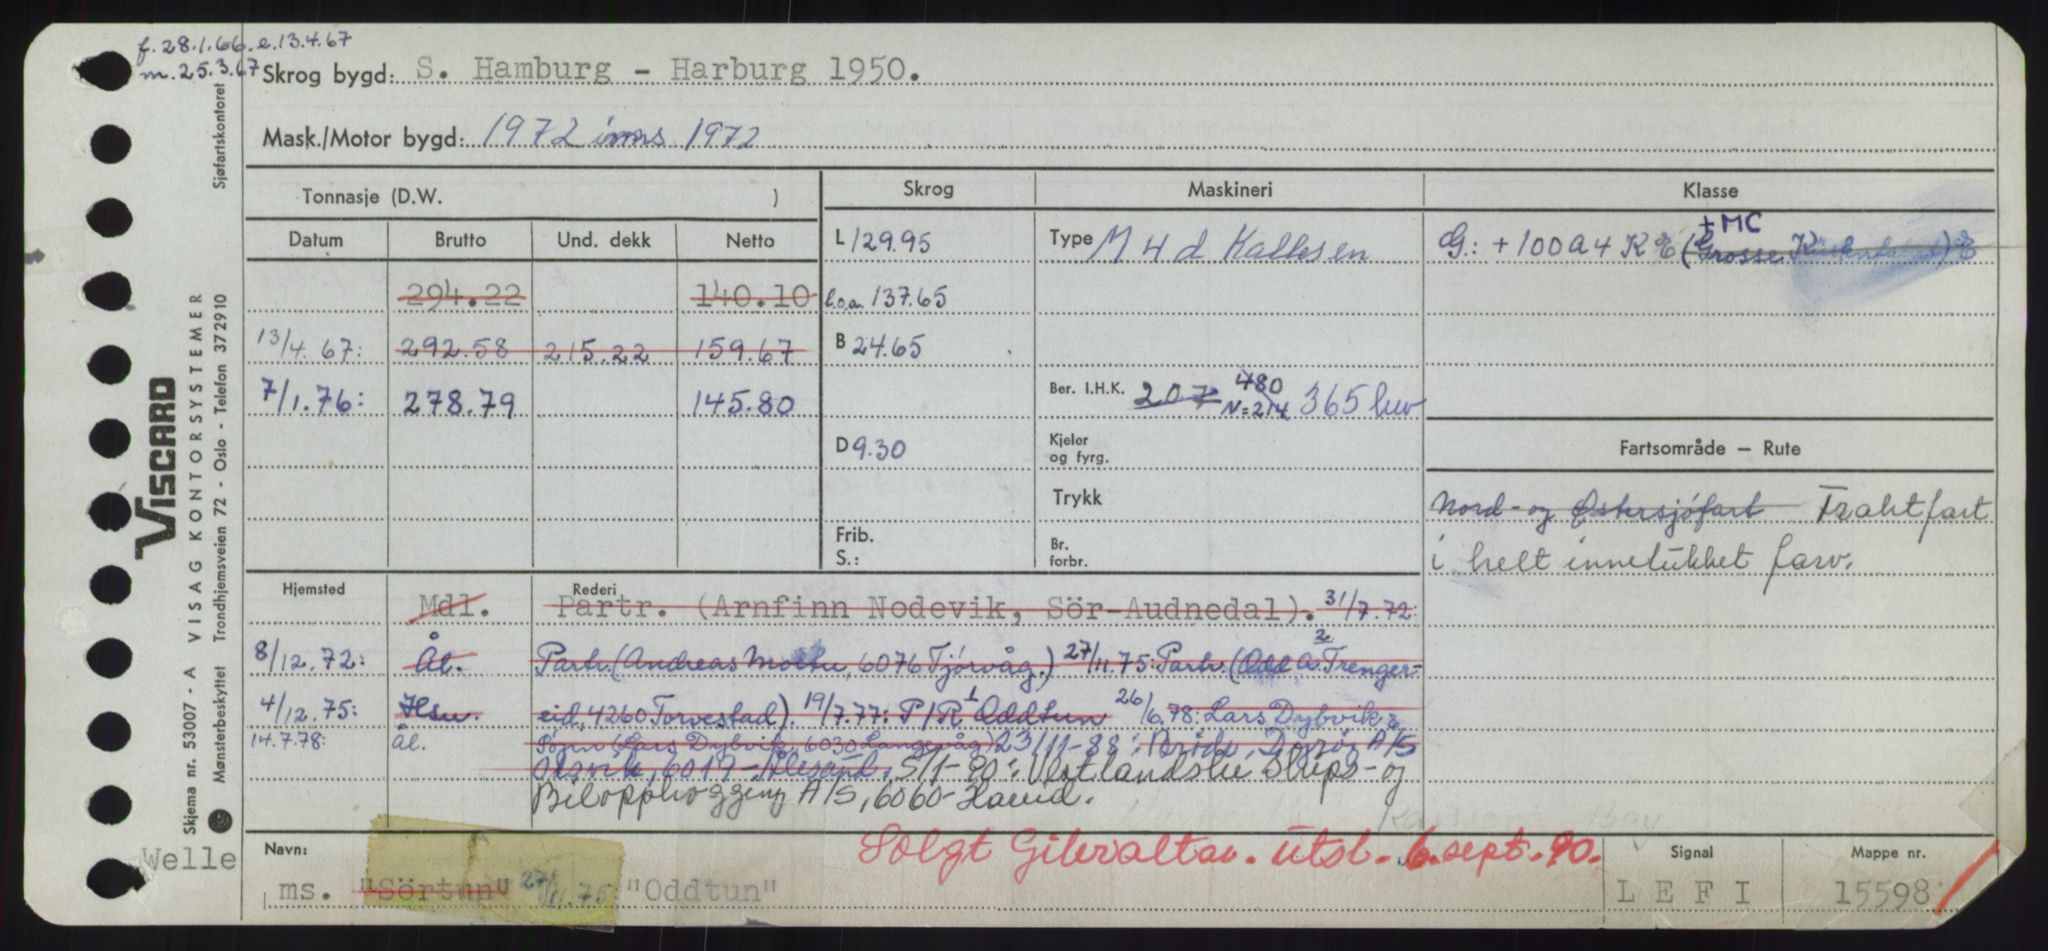 f. 28.1.66. e. 13.4.67
m. 25.3.67
Skrog bygd: S. Hamburg - Harburg 1950.
Mask./Motor bygd: 1972 inns 1972
Tonnasje (D.W. )
Skrog Maskineri Klasse
Datum Brutto Und. dekk Netto
L 129.95 Type M 4 d Kallesen G: + 100 A 4 K E (Grosse ) E
+ MC
294.22 140.10 l.o.a. 137.65
13/4. 67: 292.58 215.22 159.67 B 24.65
7/1.76: 278.79 145.80 Ber. I.H.K. 207 480 N=214 365 hw
D 9.30 Kjeler og fyrg.
Fartsområde — Rute
Trykk Nord- og Østersjöfart Fraktfart
Frib. S.: Br. forbr. i helt innelukket farv.
Hjemsted Rederi
Mdl. Partr. (Arnfinn Nodevik, Sör-Audnedal). 31/7.72:
8/12.72: Ål. Partr. (Andreas Moltu, 6076 Tjörvåg.) 27/11.75: Partr. (Odd A. Trenger-
4/12.75: Hsu. eid, 4260 Torvestad). 19/7.77: P/R Oddtun 26/6.78: Lars Dybvik &
14.7.78: Ål. (Lars Dybvik, 6030 Langevåg) 23/11-88: A/S
6017 - Ålesund. 5/1-90: Vestlandske Skips- og
Bilopphogging A/S, 6060-Hareid.
Solgt Gibraltar. Utsl. 6. sept. 90.
Welle
Navn: ms. "Sörtun" 27/11.75: "Oddtun"
Signal LEFI
Mappe nr. 15598
VISCARD
VISAG KONTORSYSTEMER
Skjema nr. 53007 - A
Mønsterbeskyttet Trondhjemsveien 72 - Oslo - Telefon 372910
Sjøfartskontoret